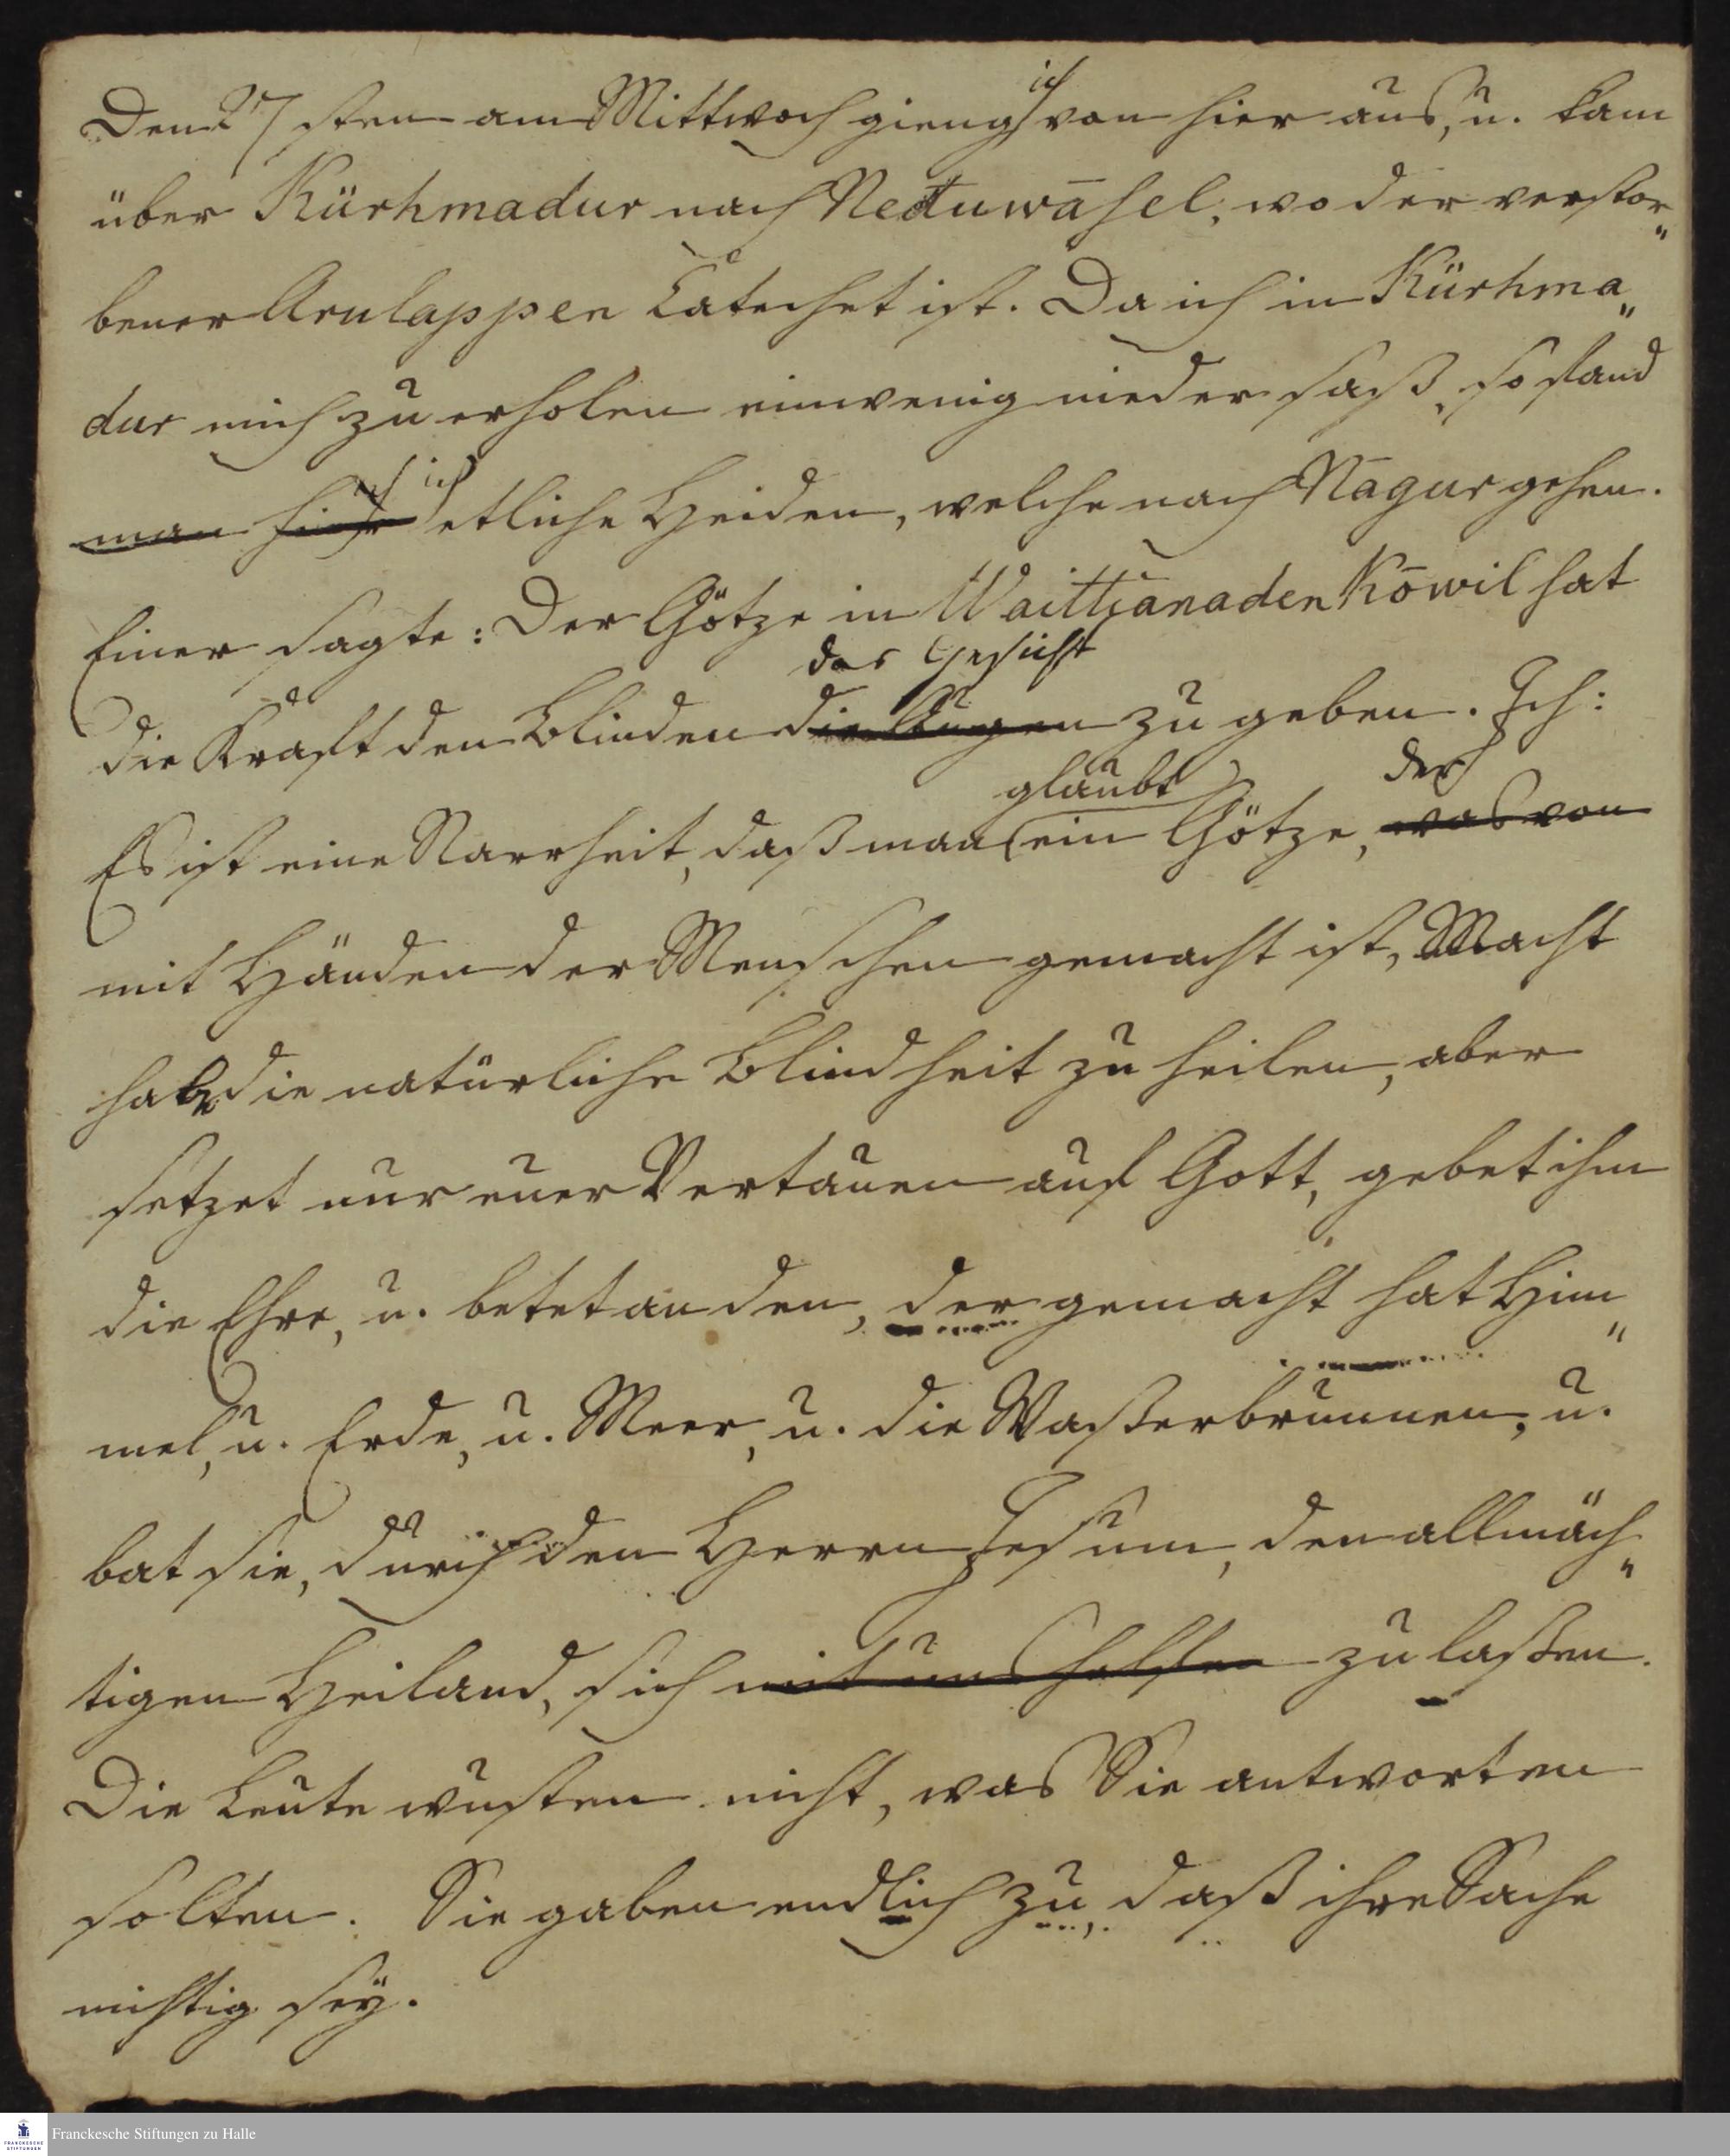 Den 27 sten am Mittwoch gieng ich von hier aus, u. kam
über Kürhmadur nach Nettuwāsel, wo der verstor„
bener Arulappen Catechet ist. Da ich in Kürhma„
dur mich zu erholen ein wenig nieder saß, so fand
ich etliche Heiden, welche nach Nāgur gehen.
Einer sagte: Der Götze in Waittianaden Kōwil hat
das Gesicht
die Kraft den Blinden die Augen zu geben. Ich:
glaubt der
Es ist eine Narrheit, daß man ein Götze, was von
mit Händen der Menschen gemacht ist, Macht
habe die natürliche Blindheit zu heilen, aber
setzet nur euer Vertauen auf Gott, gebet ihm
die Ehre, u. betet an den, der gemacht hat Him„
mel, u. Erde, u. Meer, u. die Waßerbrunnen, u.
bat sie, durch den Herrn Jesum, den allmäch„
tigen Heiland, sich mit uns helfen zu laßen.
Die Leute wusten nicht, was Sie antworten
solten. Sie gaben endlich zu, daß ihre Sache
nichtig seÿ.
Franckesche Stiftungen zu Halle